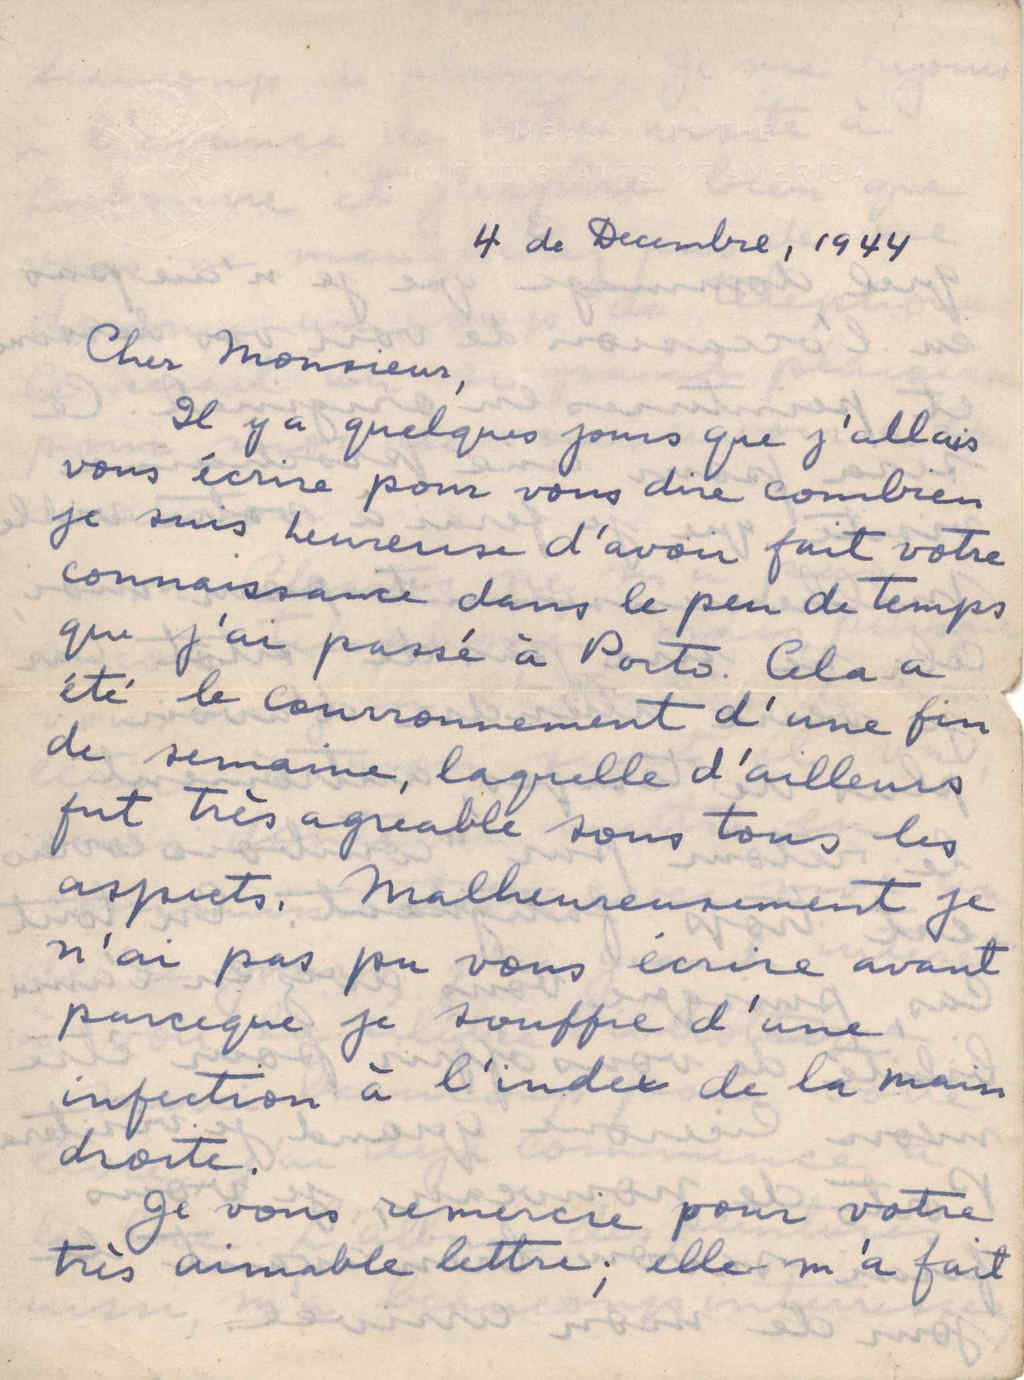 EMBASSY OF THE
UNITED STATES OF AMERICA
4 de Decembre, 1944
Cher Monsieur,
Il y a quelques jours que j'allais
vous écrire pour vous dire combien
je suis heureuse d'avoir fait votre
connaissance dans le peu de temps
que j'ai passé à Porto. Cela a
été le courronnement d'une fin
de semaine, laquelle d'ailleurs
fut très agreable sous tous les
aspects. Malheureusement je
n'ai pas pu vous écrire avant
parceque je souffre d'une
infection à l'index de la main
droite.
Je vous remercie pour votre
très aimable lettre; elle m'a fait